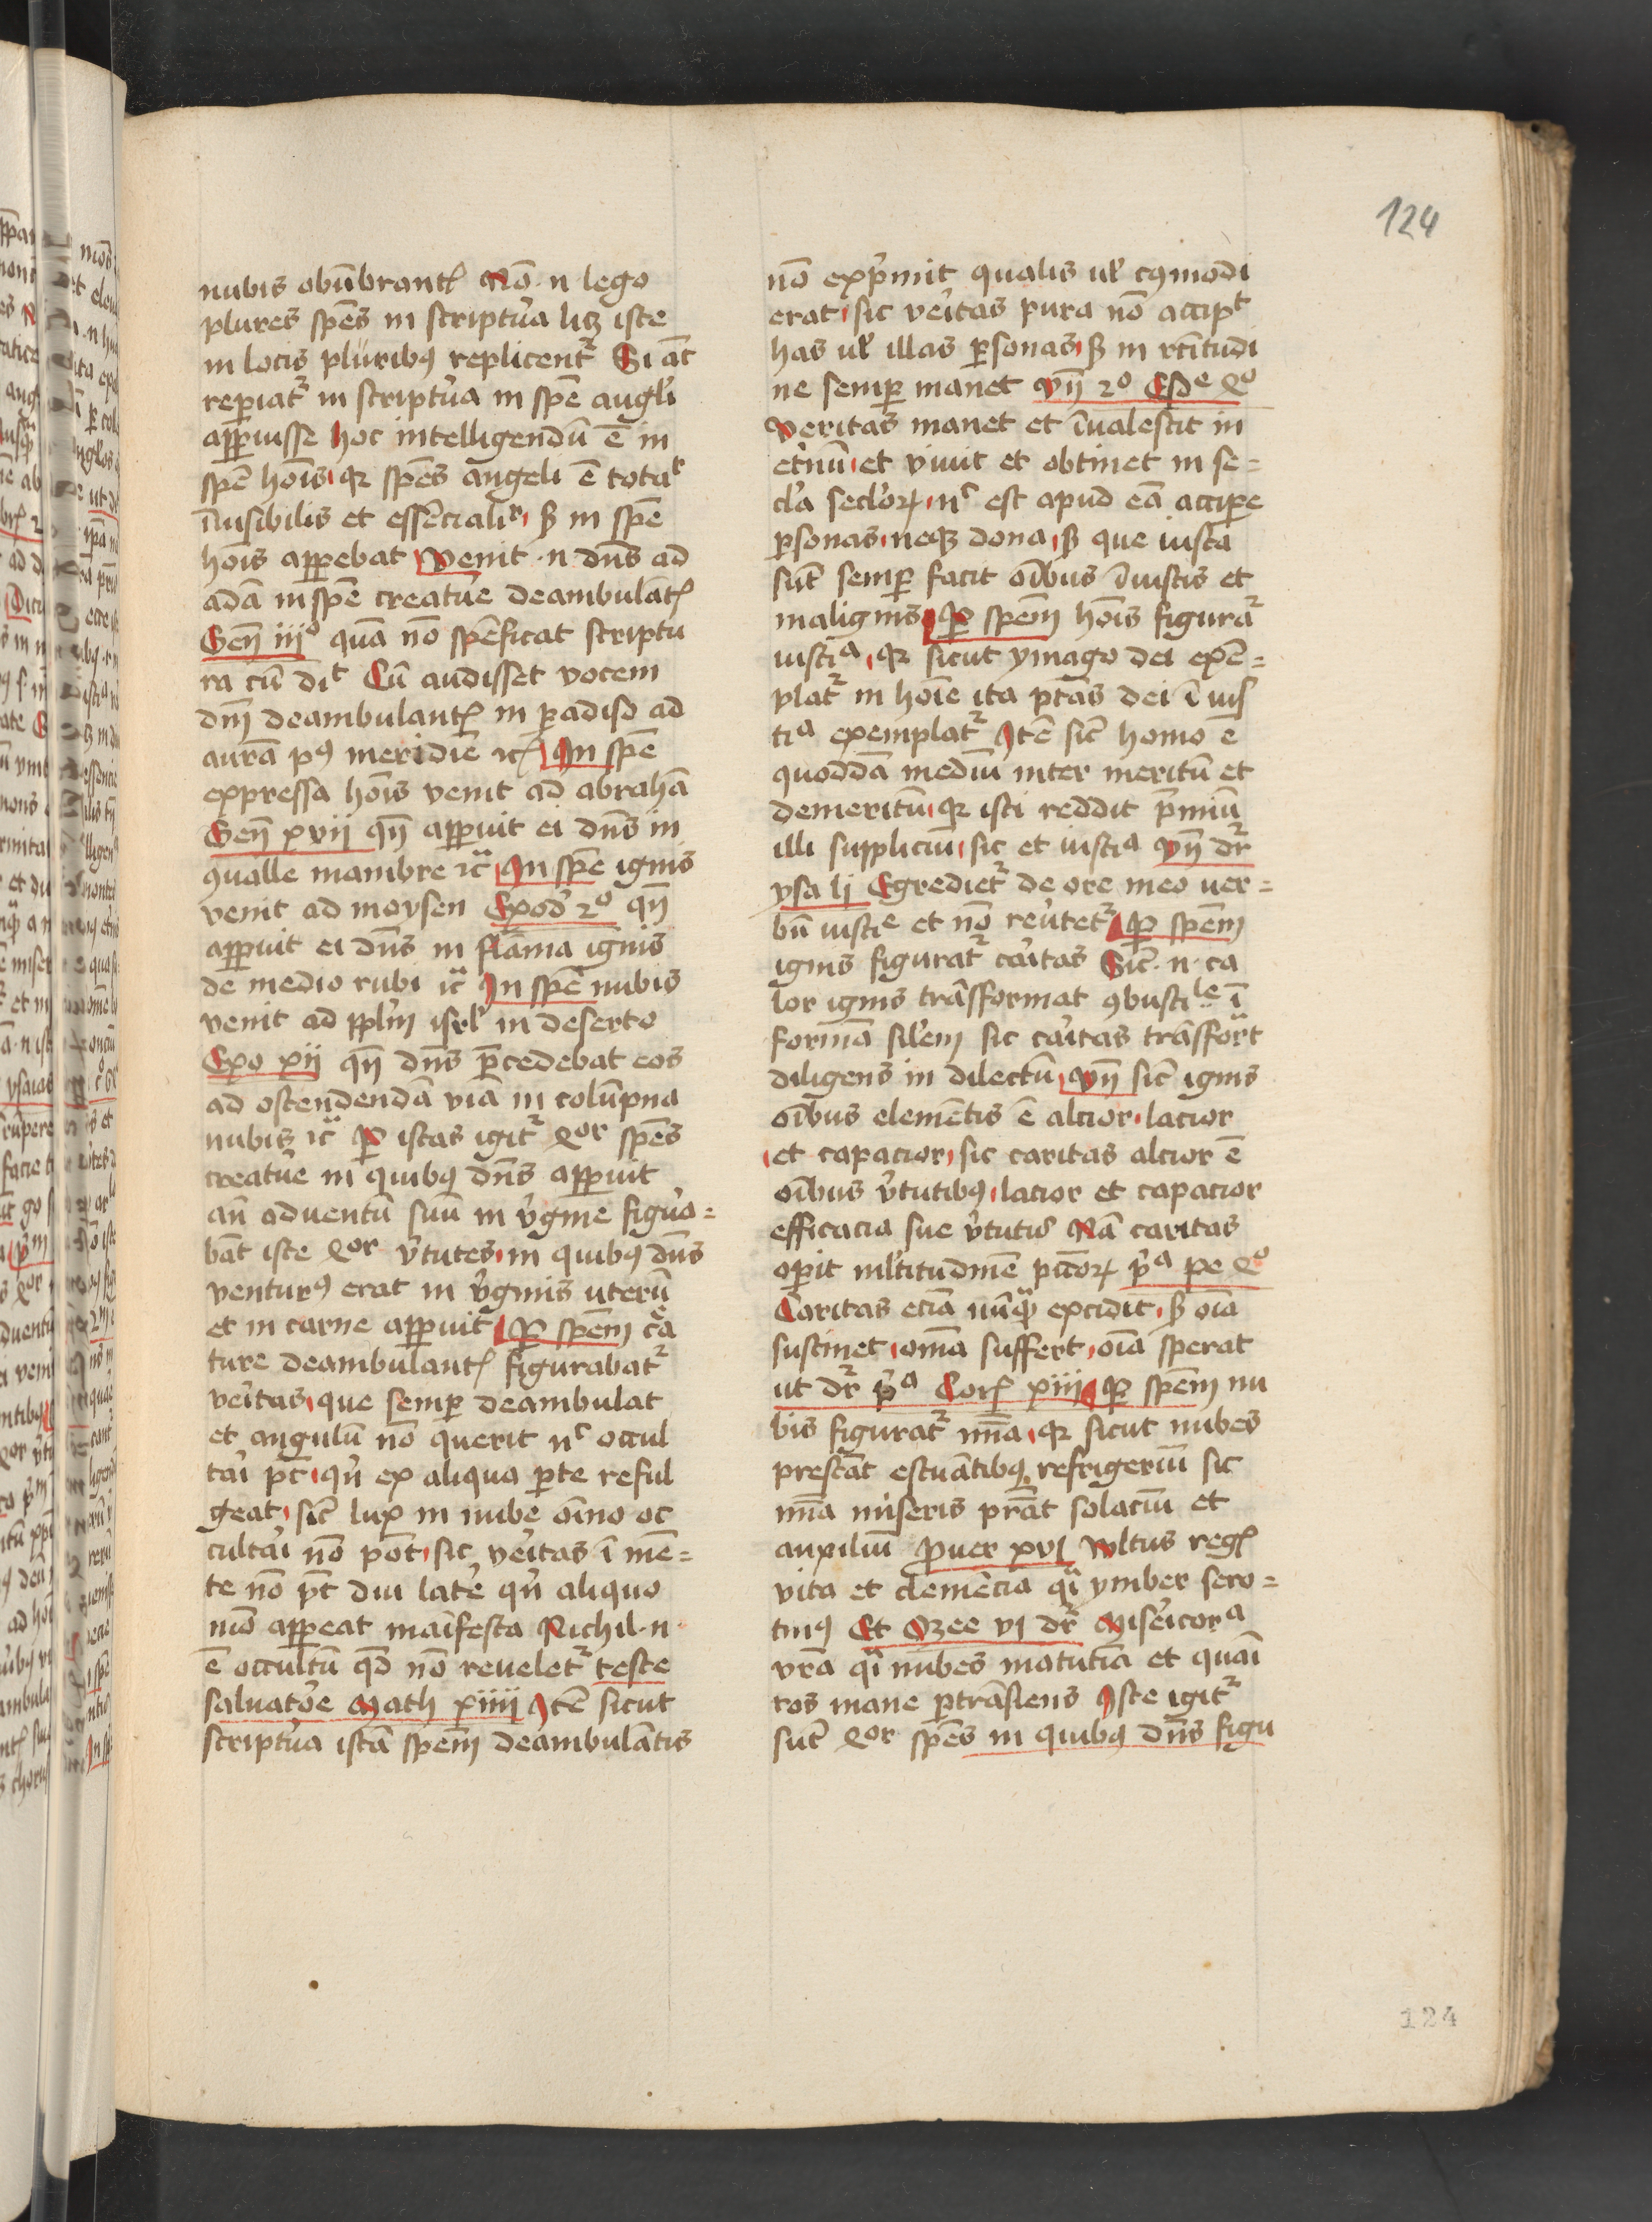 124
nubis obūbrantꝭ Nō .n. lego
plures spēs in scriptura lꝫ iste
in locis pluribꝯ replicentᷣ Si aūt
reperiatᷣ in scriptura in spē angeli
apparuisse hoc intelligendū ē in
spē hoīs qꝛ spēs angeli ē totalr
īuisibilis et essēcialr sꝫ in spē
hoīs apparebat Venit .n. dn̄s ad
adā in spē creature deambulātꝭ
Gen̄ iijº quā nō spēficat scriptu
ra cū dit Cū audisset vocem
dn̄i deambulantꝭ in paradiso ad
aurā pꝯ meridiē ꝛcꝭ In spē
expressa hoīs venit ad abrahā
Gen̄ xvij qn̄ apparuit ei dn̄s in
ꝯualle mambre ꝛcᷓ In spē ignis
venit ad moysen Exod 2º qn̄
apparuit ei dn̄s in flāma ignis
de medio rubi ꝛcᷓ In spē nubis
venit ad pplm̄ isrl' in deserto
Exo xij qn̄ dn̄s p̄cedebat eos
ad ostendendā viā in colūpna
nubis ꝛcᷓ Per istas igitᷣ qºr spēs
creature in quibꝯ dn̄s apparuit
an̄ aduentū suū in v̓gine figura=
bāt iste qºr v̓tutes in quibꝯ dn̄s
venturꝯ erat in v̓ginis uterū
et in carne apparuit Per spēm c̄a
ture deambulantꝭ figurabatᷣ
veritas que semper deambulat
et angulū nō querit nᶜ occul
tari pt̄ qn̄ ex aliqua parte reful
geat sic̄ lux in nube oīno oc
cultari nō potꝰ sic veritas ī mē=
te nō pt̄ diu latē qn̄ aliquo
mō appareat māifesta Nichil .n.
ē occultū qd̄ nō reueletᷣ teste
saluatore Math xiiij Itē sicut
scriptura istā spēm deambulātis
nō exp̄mit qualis ul' cꝯmodi
erat sic veritas pura nō accipt
has ul' illas personas sꝫ in rc̄titudi
ne semper manet vn̄ 2º Esdre qº
Veritas manet et īualescit in
et̓nū et viuit et obtinet in se=
cl'a secl'oꝝ nᶜ est apud eā accipere
personas neqꝫ dona sꝫ que iusta
sūt semper facit oībus īiustis et
malignis Per spēm hoīs figuraᷣ
iustiᵃ qꝛ sicut ymago dei exē=
platᷣ in hoīe ita pt̄as dei ī ius
tiᵃ exemplatᷣ Itē sic̄ homo ē
quoddā mediū inter meritū et
demeritū qꝛ isti reddit p̄miū
illi suppliciū sic et iustiᵃ vn̄ dᷣ
ysa lj Egredietᷣ de ore meo uer=
bū iustiᵉ et nō reu̓tetᷣ Per spēm
ignis figuratᷣ caritas Sic̄ .n. ca
lor ignis trāsformat ꝯbustile ī
formā sil'em sic caritas trāsforᷓt
diligens in dilectū vn̄ sic̄ ignis
oībus elemētis ē alcior lacior
et capacior sic caritas alcior ē
oībus v̓tutibꝯ lacior et capacior
efficacia sue v̓tutis Nā caritas
operit ml'titudinē pcc̄oꝝ p̓ᵃ pe qº
Caritas eciā nūqᷓ excidit sꝫ oīa
sustinet omīa suffert oīa sperat
ut dᷣ p̓ᵃ Corꝭ xiij Per spēm nu
bis figuratᷣ mīa qꝛ sicut nubes
prestāt estuātibꝯ refrigeriū sic
mīa miseris prāt solaciū et
auxiliū Prouer xvj vultus regꝭ
vita et clemēcia qͥ ymber sero=
tinꝯ Et Ozee vj dᷣ Misericorᵃ
vrā qͥ nubes matutīa et quāi
ros mane pertrāsiens Iste igitᷣ
sūt qºr spēs in quibꝯ dn̄s figu
124